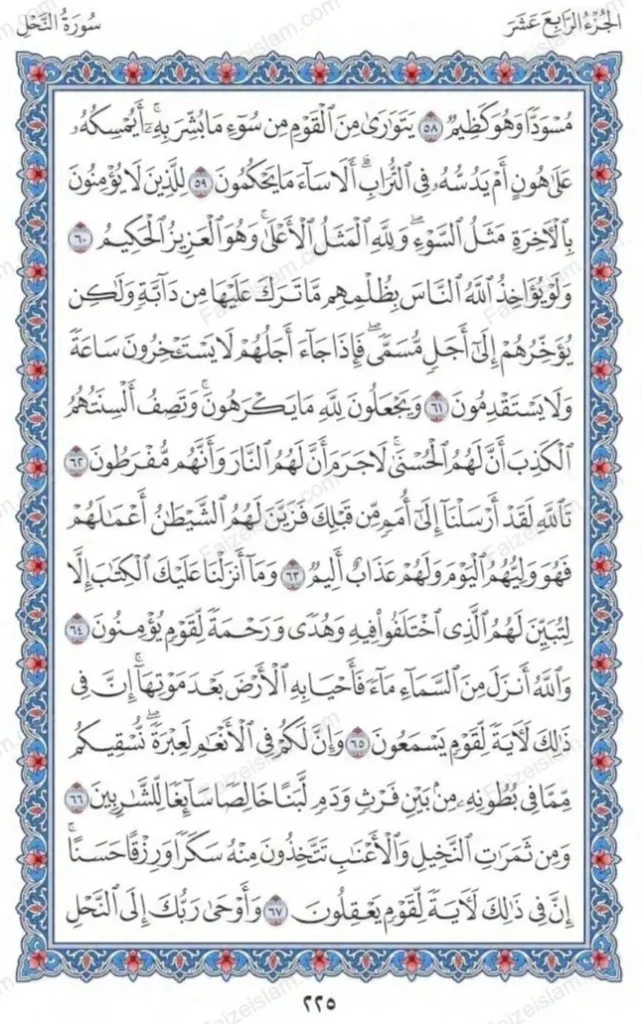 الجزء الرابع عشر
سورة النحل
مُسْوَدًّا وَهُوَ كَظِيمٌ ٥٨ يَتَوَارَىٰ مِنَ ٱلْقَوْمِ مِن سُوٓءِ مَا بُشِّرَ بِهِۦٓ ۚ أَيُمْسِكُهُۥ
عَلَىٰ هُونٍ أَمْ يَدُسُّهُۥ فِى ٱلتُّرَابِ ۗ أَلَا سَآءَ مَا يَحْكُمُونَ ٥٩ لِلَّذِينَ لَا يُؤْمِنُونَ
بِٱلْـَٔاخِرَةِ مَثَلُ ٱلسَّوْءِ ۖ وَلِلَّهِ ٱلْمَثَلُ ٱلْأَعْلَىٰ ۚ وَهُوَ ٱلْعَزِيزُ ٱلْحَكِيمُ ٦٠
وَلَوْ يُؤَاخِذُ ٱللَّهُ ٱلنَّاسَ بِظُلْمِهِم مَّا تَرَكَ عَلَيْهَا مِن دَآبَّةٍ وَلَـٰكِن
يُؤَخِّرُهُمْ إِلَىٰٓ أَجَلٍ مُّسَمًّى ۖ فَإِذَا جَآءَ أَجَلُهُمْ لَا يَسْتَـْٔخِرُونَ سَاعَةً
وَلَا يَسْتَقْدِمُونَ ٦١ وَيَجْعَلُونَ لِلَّهِ مَا يَكْرَهُونَ ۚ وَتَصِفُ أَلْسِنَتُهُمُ
ٱلْكَذِبَ أَنَّ لَهُمُ ٱلْحُسْنَىٰ ۖ لَا جَرَمَ أَنَّ لَهُمُ ٱلنَّارَ وَأَنَّهُم مُّفْرَطُونَ ٦٢
تَٱللَّهِ لَقَدْ أَرْسَلْنَآ إِلَىٰٓ أُمَمٍ مِّن قَبْلِكَ فَزَيَّنَ لَهُمُ ٱلشَّيْطَـٰنُ أَعْمَـٰلَهُمْ
فَهُوَ وَلِيُّهُمُ ٱلْيَوْمَ وَلَهُمْ عَذَابٌ أَلِيمٌ ٦٣ وَمَآ أَنزَلْنَا عَلَيْكَ ٱلْكِتَـٰبَ إِلَّا
لِتُبَيِّنَ لَهُمُ ٱلَّذِى ٱخْتَلَفُوا۟ فِيهِ ۙ وَهُدًى وَرَحْمَةً لِّقَوْمٍ يُؤْمِنُونَ ٦٤
وَٱللَّهُ أَنزَلَ مِنَ ٱلسَّمَآءِ مَآءً فَأَحْيَا بِهِ ٱلْأَرْضَ بَعْدَ مَوْتِهَآ ۚ إِنَّ فِى
ذَٰلِكَ لَـَٔايَةً لِّقَوْمٍ يَسْمَعُونَ ٦٥ وَإِنَّ لَكُمْ فِى ٱلْأَنْعَـٰمِ لَعِبْرَةً ۖ نُّسْقِيكُم
مِّمَّا فِى بُطُونِهِۦ مِنۢ بَيْنِ فَرْثٍ وَدَمٍ لَّبَنًا خَالِصًا سَآئِغًا لِّلشَّـٰرِبِينَ ٦٦
وَمِن ثَمَرَٰتِ ٱلنَّخِيلِ وَٱلْأَعْنَـٰبِ تَتَّخِذُونَ مِنْهُ سَكَرًا وَرِزْقًا حَسَنًا ۗ
إِنَّ فِى ذَٰلِكَ لَـَٔايَةً لِّقَوْمٍ يَعْقِلُونَ ٦٧ وَأَوْحَىٰ رَبُّكَ إِلَى ٱلنَّحْلِ
٢٢٥
Faizeislam.com